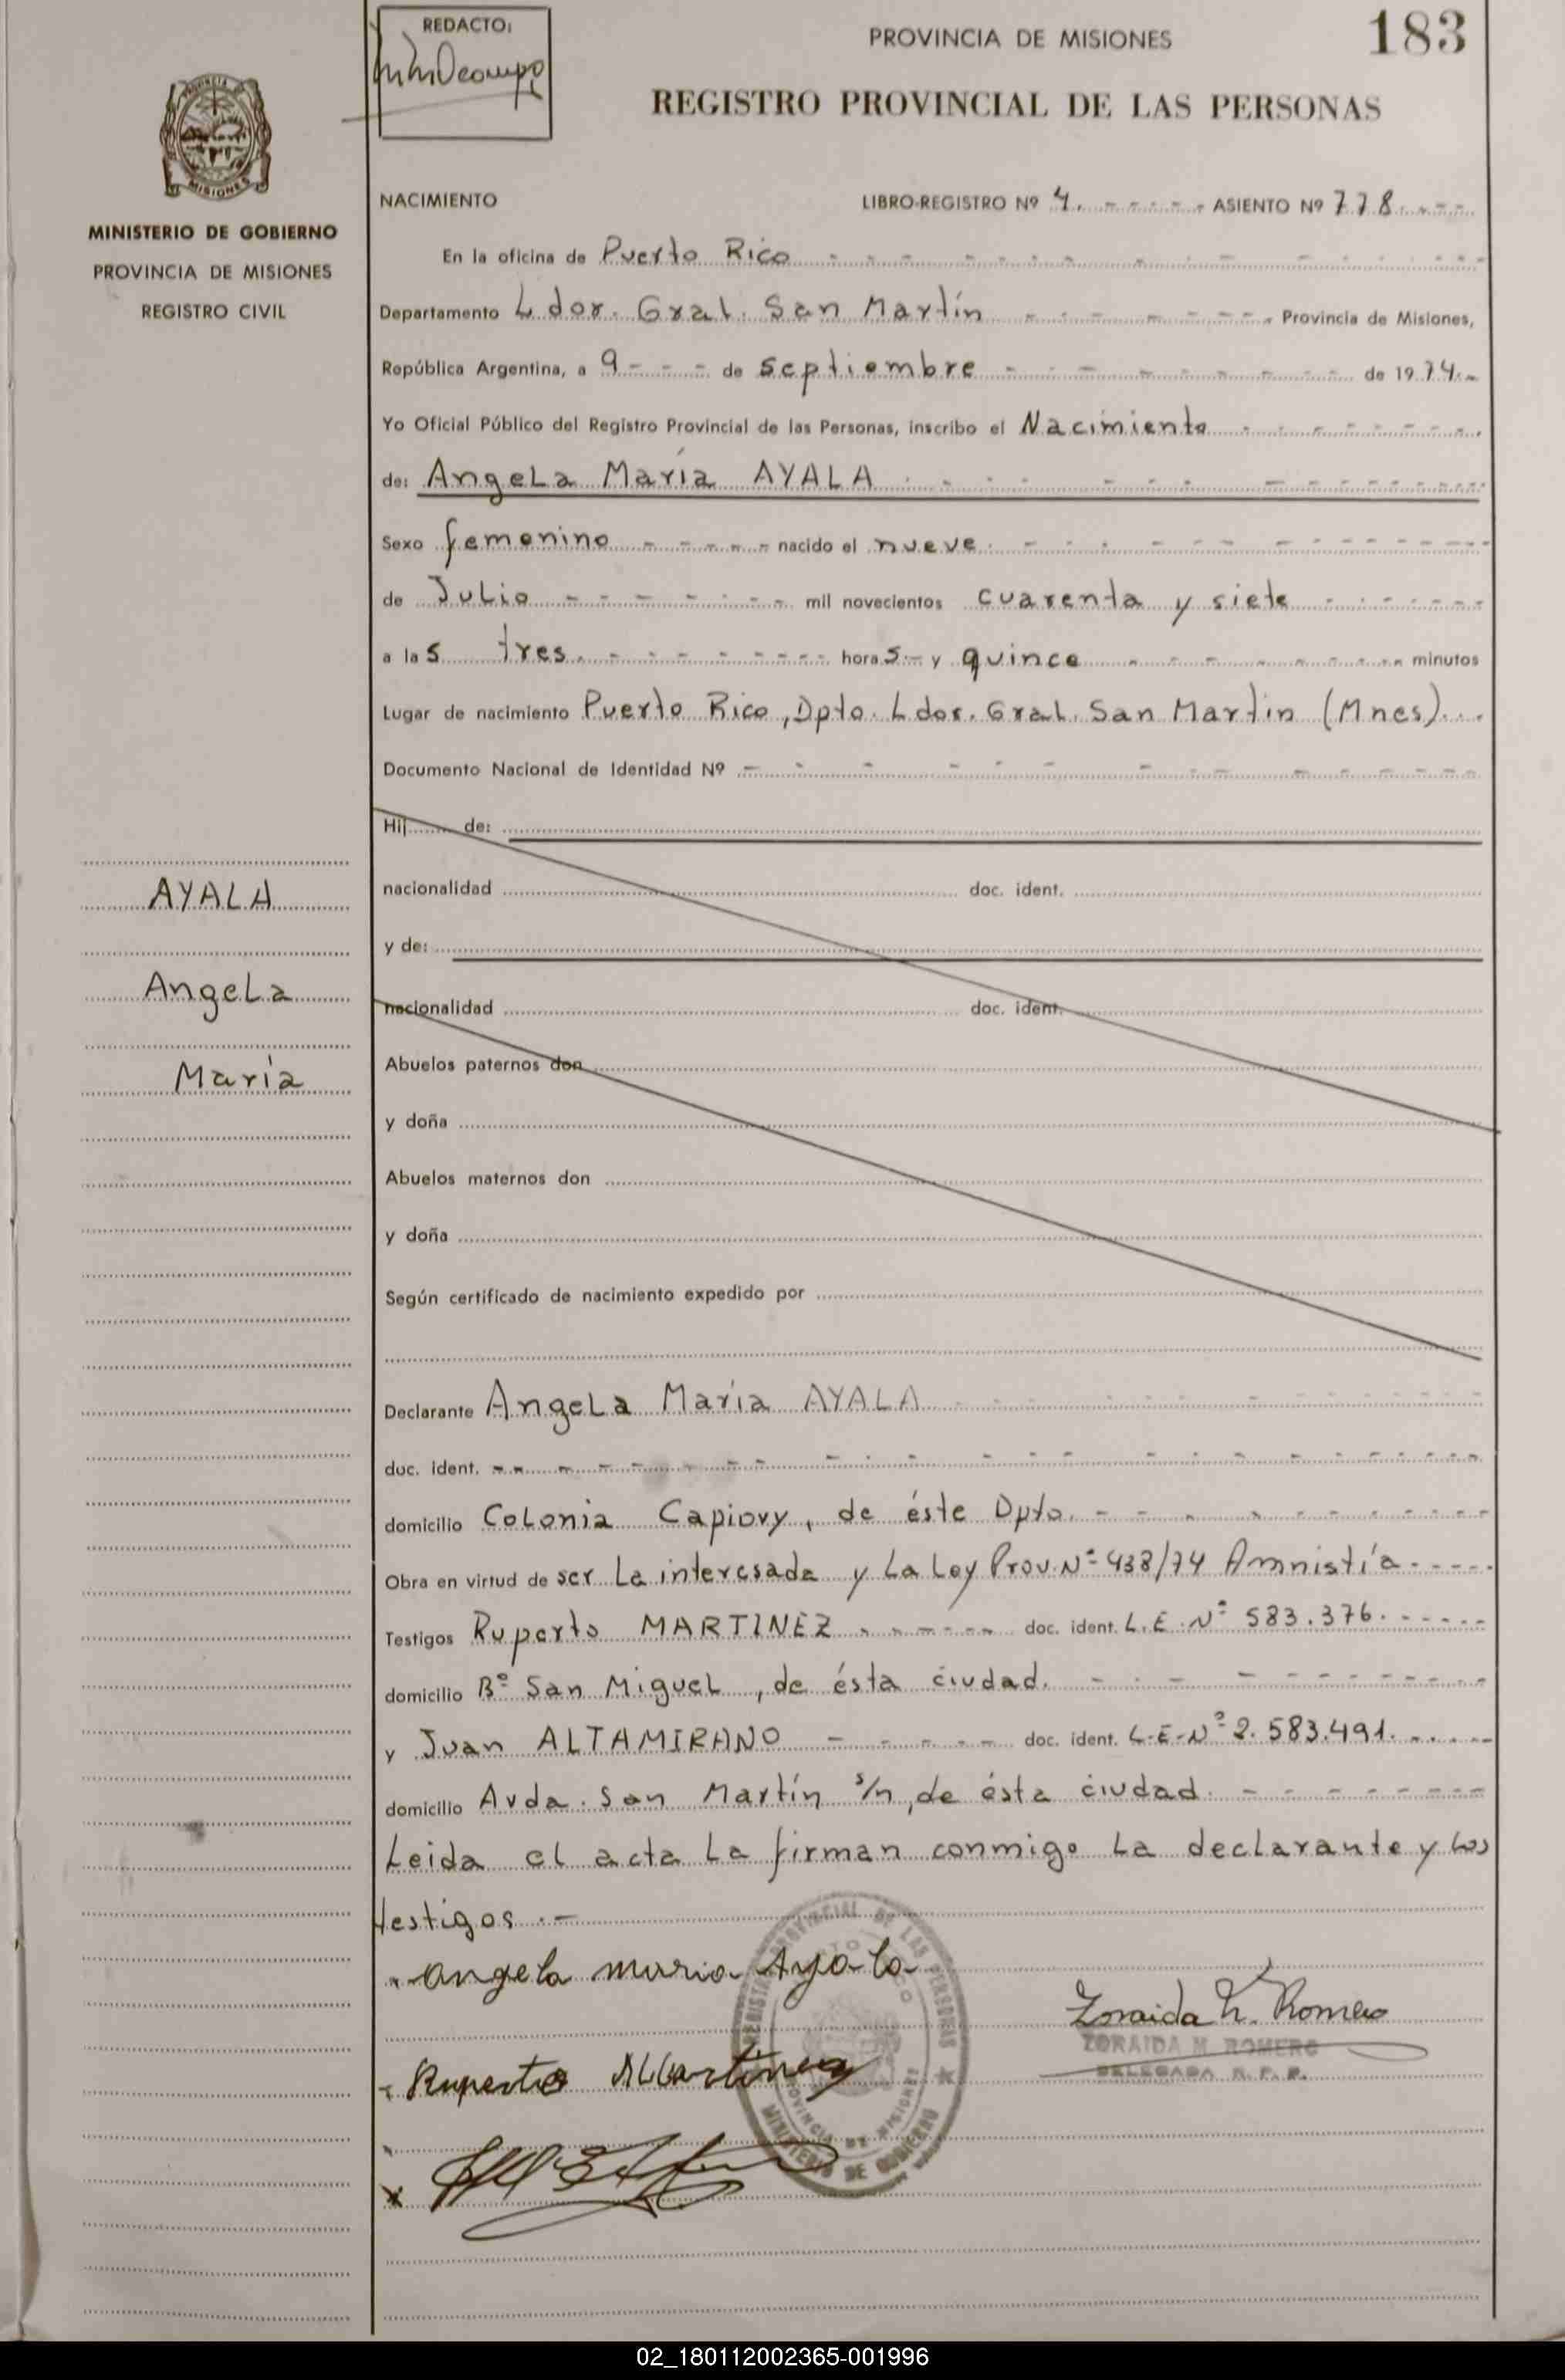 REDACTO:
PROVINCIA DE MISIONES
183
REGISTRO PROVINCIAL DE LAS PERSONAS
MISIONES
MINISTERIO DE GOBIERNO
PROVINCIA DE MISIONES
REGISTRO CIVIL
NACIMIENTO LIBRO-REGISTRO Nº 4. ASIENTO Nº 778
En la oficina de Puerto Rico
Departamento Ldor. Gral. San Martín Provincia de Misiones,
República Argentina, a 9 de septiembre de 1974.
Yo Oficial Público del Registro Provincial de las Personas, inscribo el Nacimiento
de: Angela María AYALA
Sexo femenino nacido el nueve
de Julio mil novecientos cuarenta y siete
a las tres horas y quince minutos
Lugar de nacimiento Puerto Rico, Dpto. Ldor. Gral. San Martín (Mnes)
Documento Nacional de Identidad Nº
Hij de:
nacionalidad doc. ident.
y de:
nacionalidad doc. ident.
Abuelos paternos don
y doña
Abuelos maternos don
y doña
Según certificado de nacimiento expedido por
AYALA
Angela
María
Declarante Angela María AYALA
doc. ident.
domicilio Colonia Capiovy, de éste Dpto.
Obra en virtud de ser La interesada y La Ley Prov. Nº 438/74 Amnistía
Testigos Ruperto MARTINEZ doc. ident. L.E. Nº 583.376.
domicilio Bº San Miguel, de ésta ciudad.
y Juan ALTAMIRANO doc. ident. L.E. Nº 2.583.491.
domicilio Avda. San Martín s/n, de ésta ciudad.
Leida el acta La firman conmigo La declarante y Los
testigos.-
angela maria Ayala
Zoraida N. Romero
ZORAIDA N. ROMERO
DELEGADA R. P. P.
Ruperto Martinez
REGISTRO PROVINCIAL DE LAS PERSONAS
PROVINCIA DE MISIONES
MINISTERIO DE GOBIERNO
02_180112002365-001996